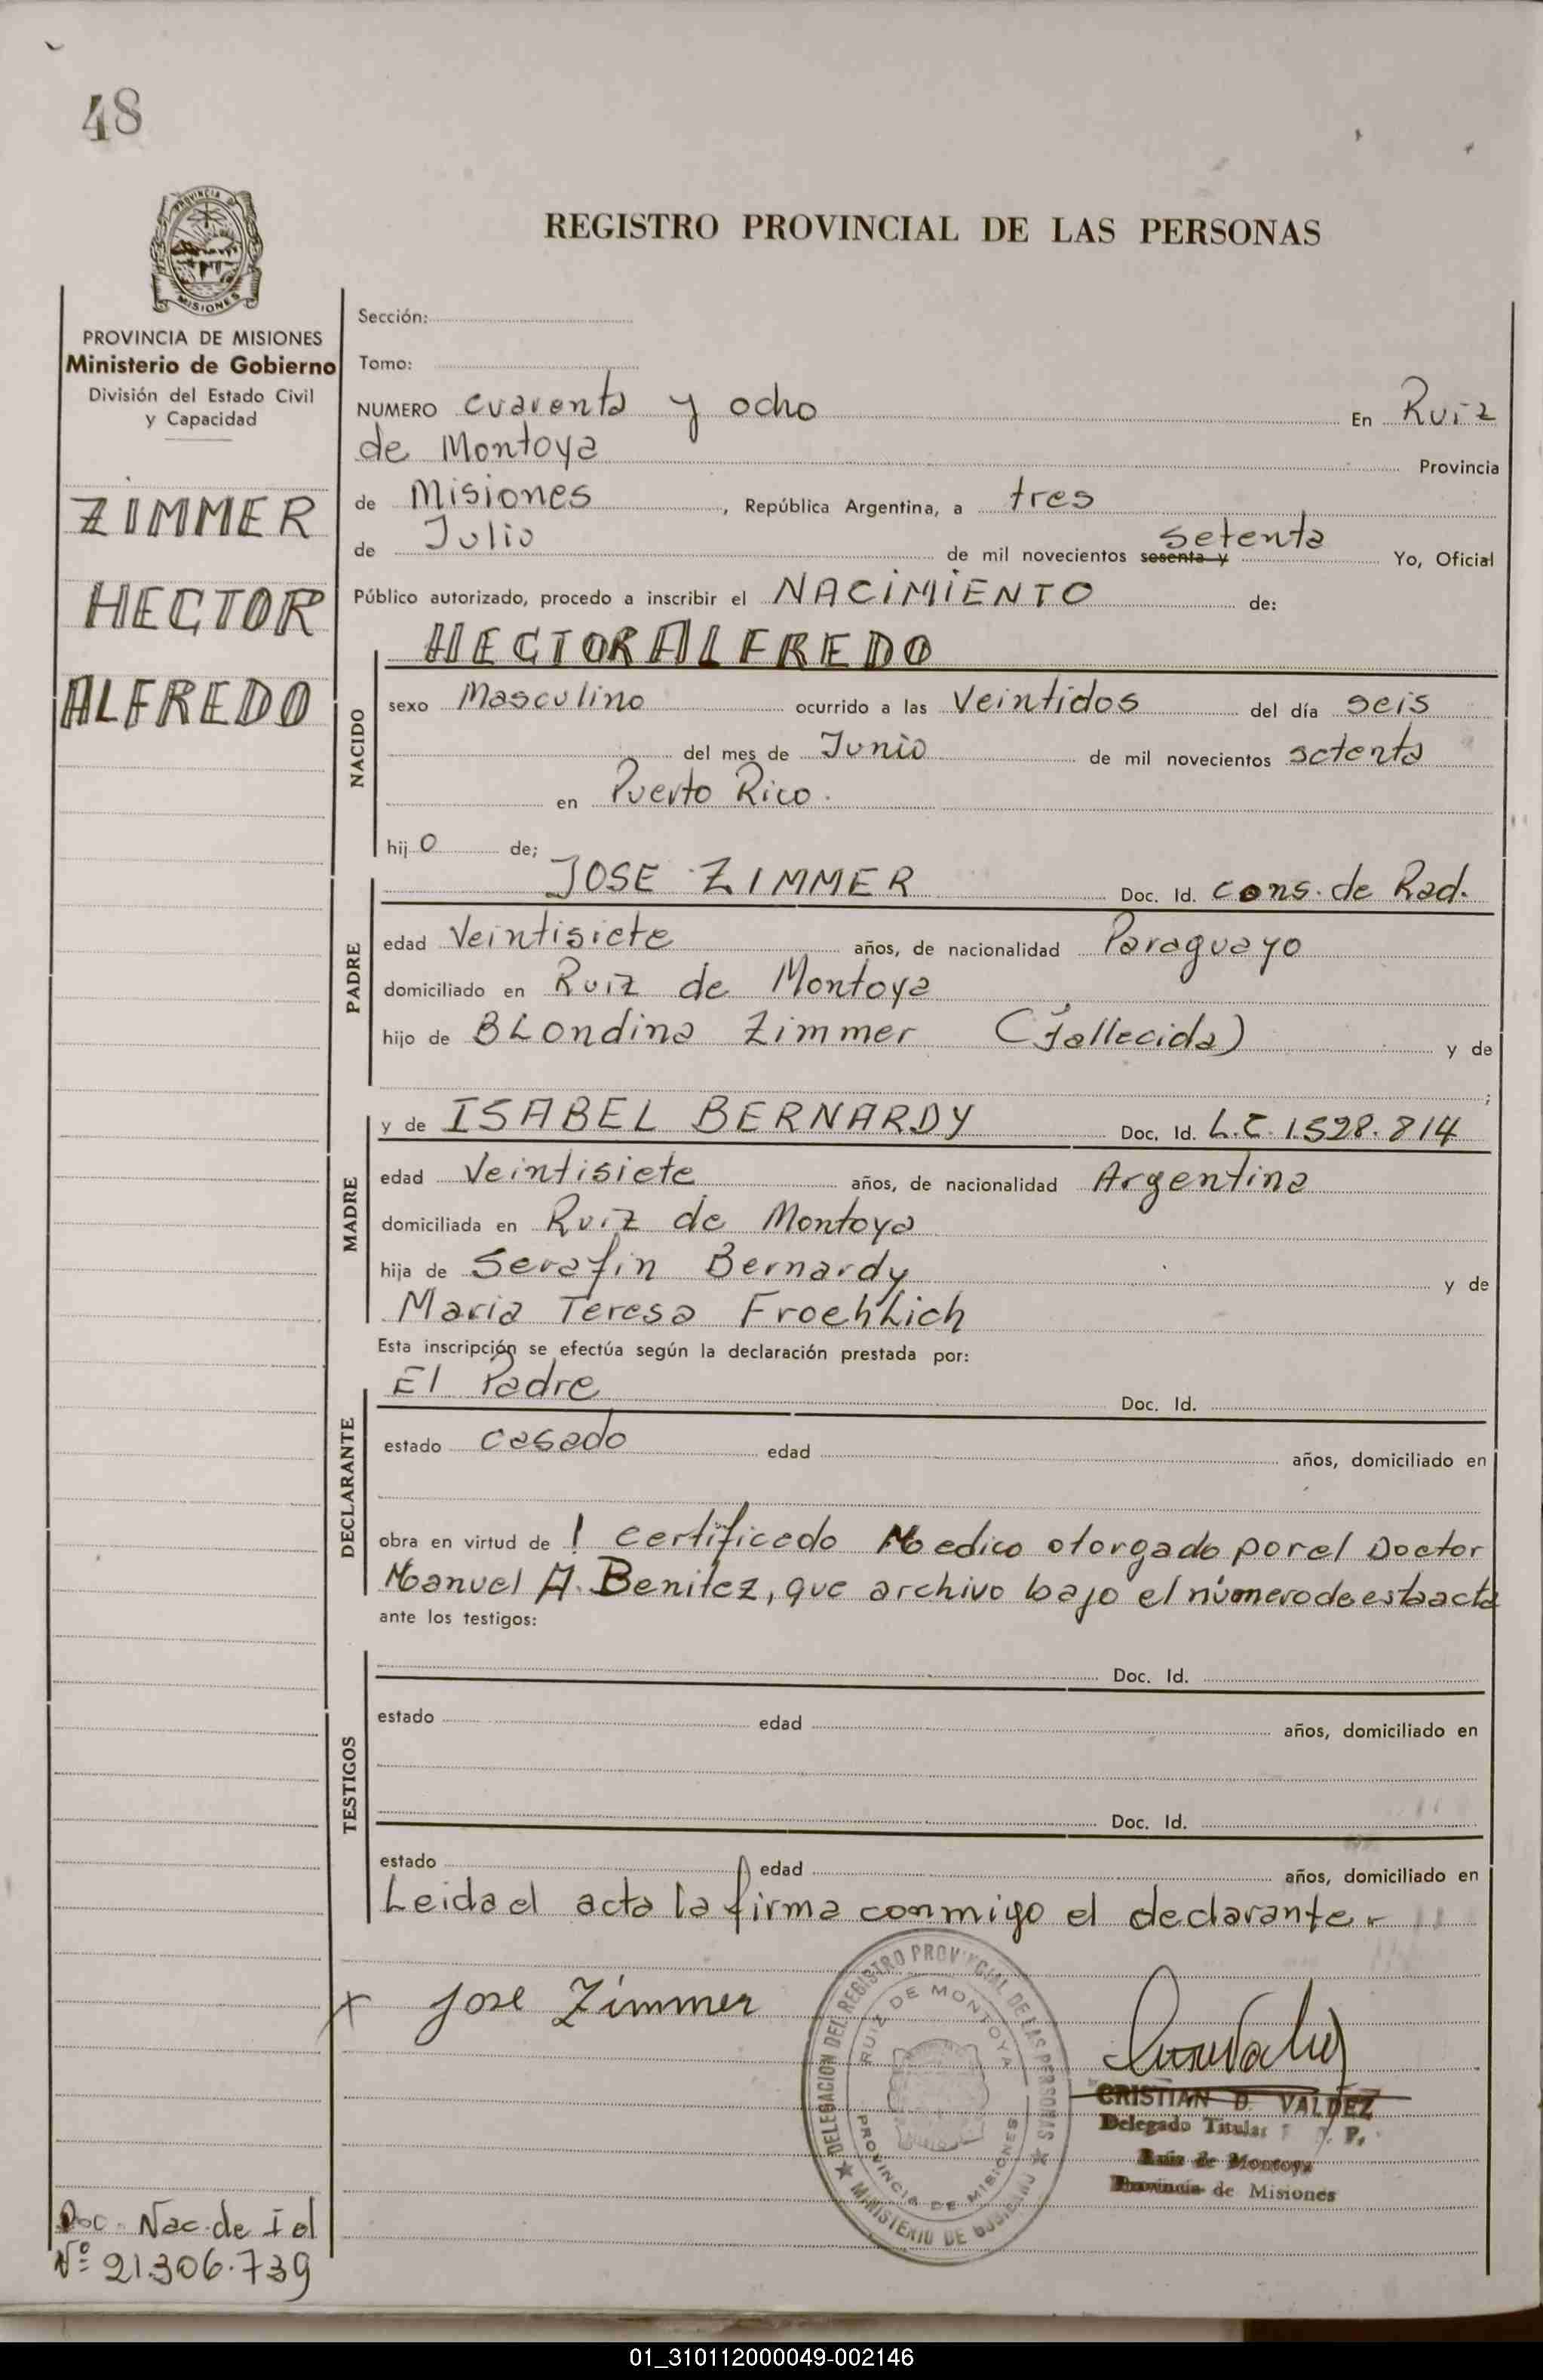 48
PROVINCIA
MISIONES
REGISTRO PROVINCIAL DE LAS PERSONAS
PROVINCIA DE MISIONES
Ministerio de Gobierno
División del Estado Civil
y Capacidad
ZIMMER
HECTOR
ALFREDO
Sección:
Tomo:
NUMERO cuarenta y ocho En Ruiz
de Montoya Provincia
de Misiones, República Argentina, a tres
de Julio de mil novecientos sesenta y setenta Yo, Oficial
Público autorizado, procedo a inscribir el NACIMIENTO de:
NACIDO
HECTOR ALFREDO
sexo Masculino ocurrido a las Veintidos del día seis
del mes de Junio de mil novecientos setenta
en Puerto Rico.
hij o de;
PADRE
JOSE ZIMMER Doc. Id. cons. de Rad.
edad Veintisiete años, de nacionalidad Paraguayo
domiciliado en Ruiz de Montoya
hijo de BLondina Zimmer (fallecida) y de
;
MADRE
y de ISABEL BERNARDY Doc. Id. L.C. 1.528.814
edad Veintisiete años, de nacionalidad Argentina
domiciliada en Ruiz de Montoya
hija de Serafin Bernardy y de
Maria Teresa Froehlich
Esta inscripción se efectúa según la declaración prestada por:
DECLARANTE
El Padre Doc. Id.
estado casado edad años, domiciliado en
obra en virtud de l certificado Medico otorgado por el Doctor
Manuel A. Benitez, que archivo bajo el número de esta acta
ante los testigos:
TESTIGOS
Doc. Id.
estado edad años, domiciliado en
Doc. Id.
estado edad años, domiciliado en
Leida el acta la firma conmigo el declarante.-
x Jose Zimmer
DELEGACION DEL REGISTRO PROVINCIAL DE LAS PERSONAS
RUIZ DE MONTOYA
PROVINCIA DE MISIONES
MINISTERIO DE GOBIERNO
CRISTIAN D. VALDEZ
Delegado Titular
Ruiz de Montoya
Provincia de Misiones
Doc. Nac. de Id
Nº 21.306.739
01_310112000049-002146